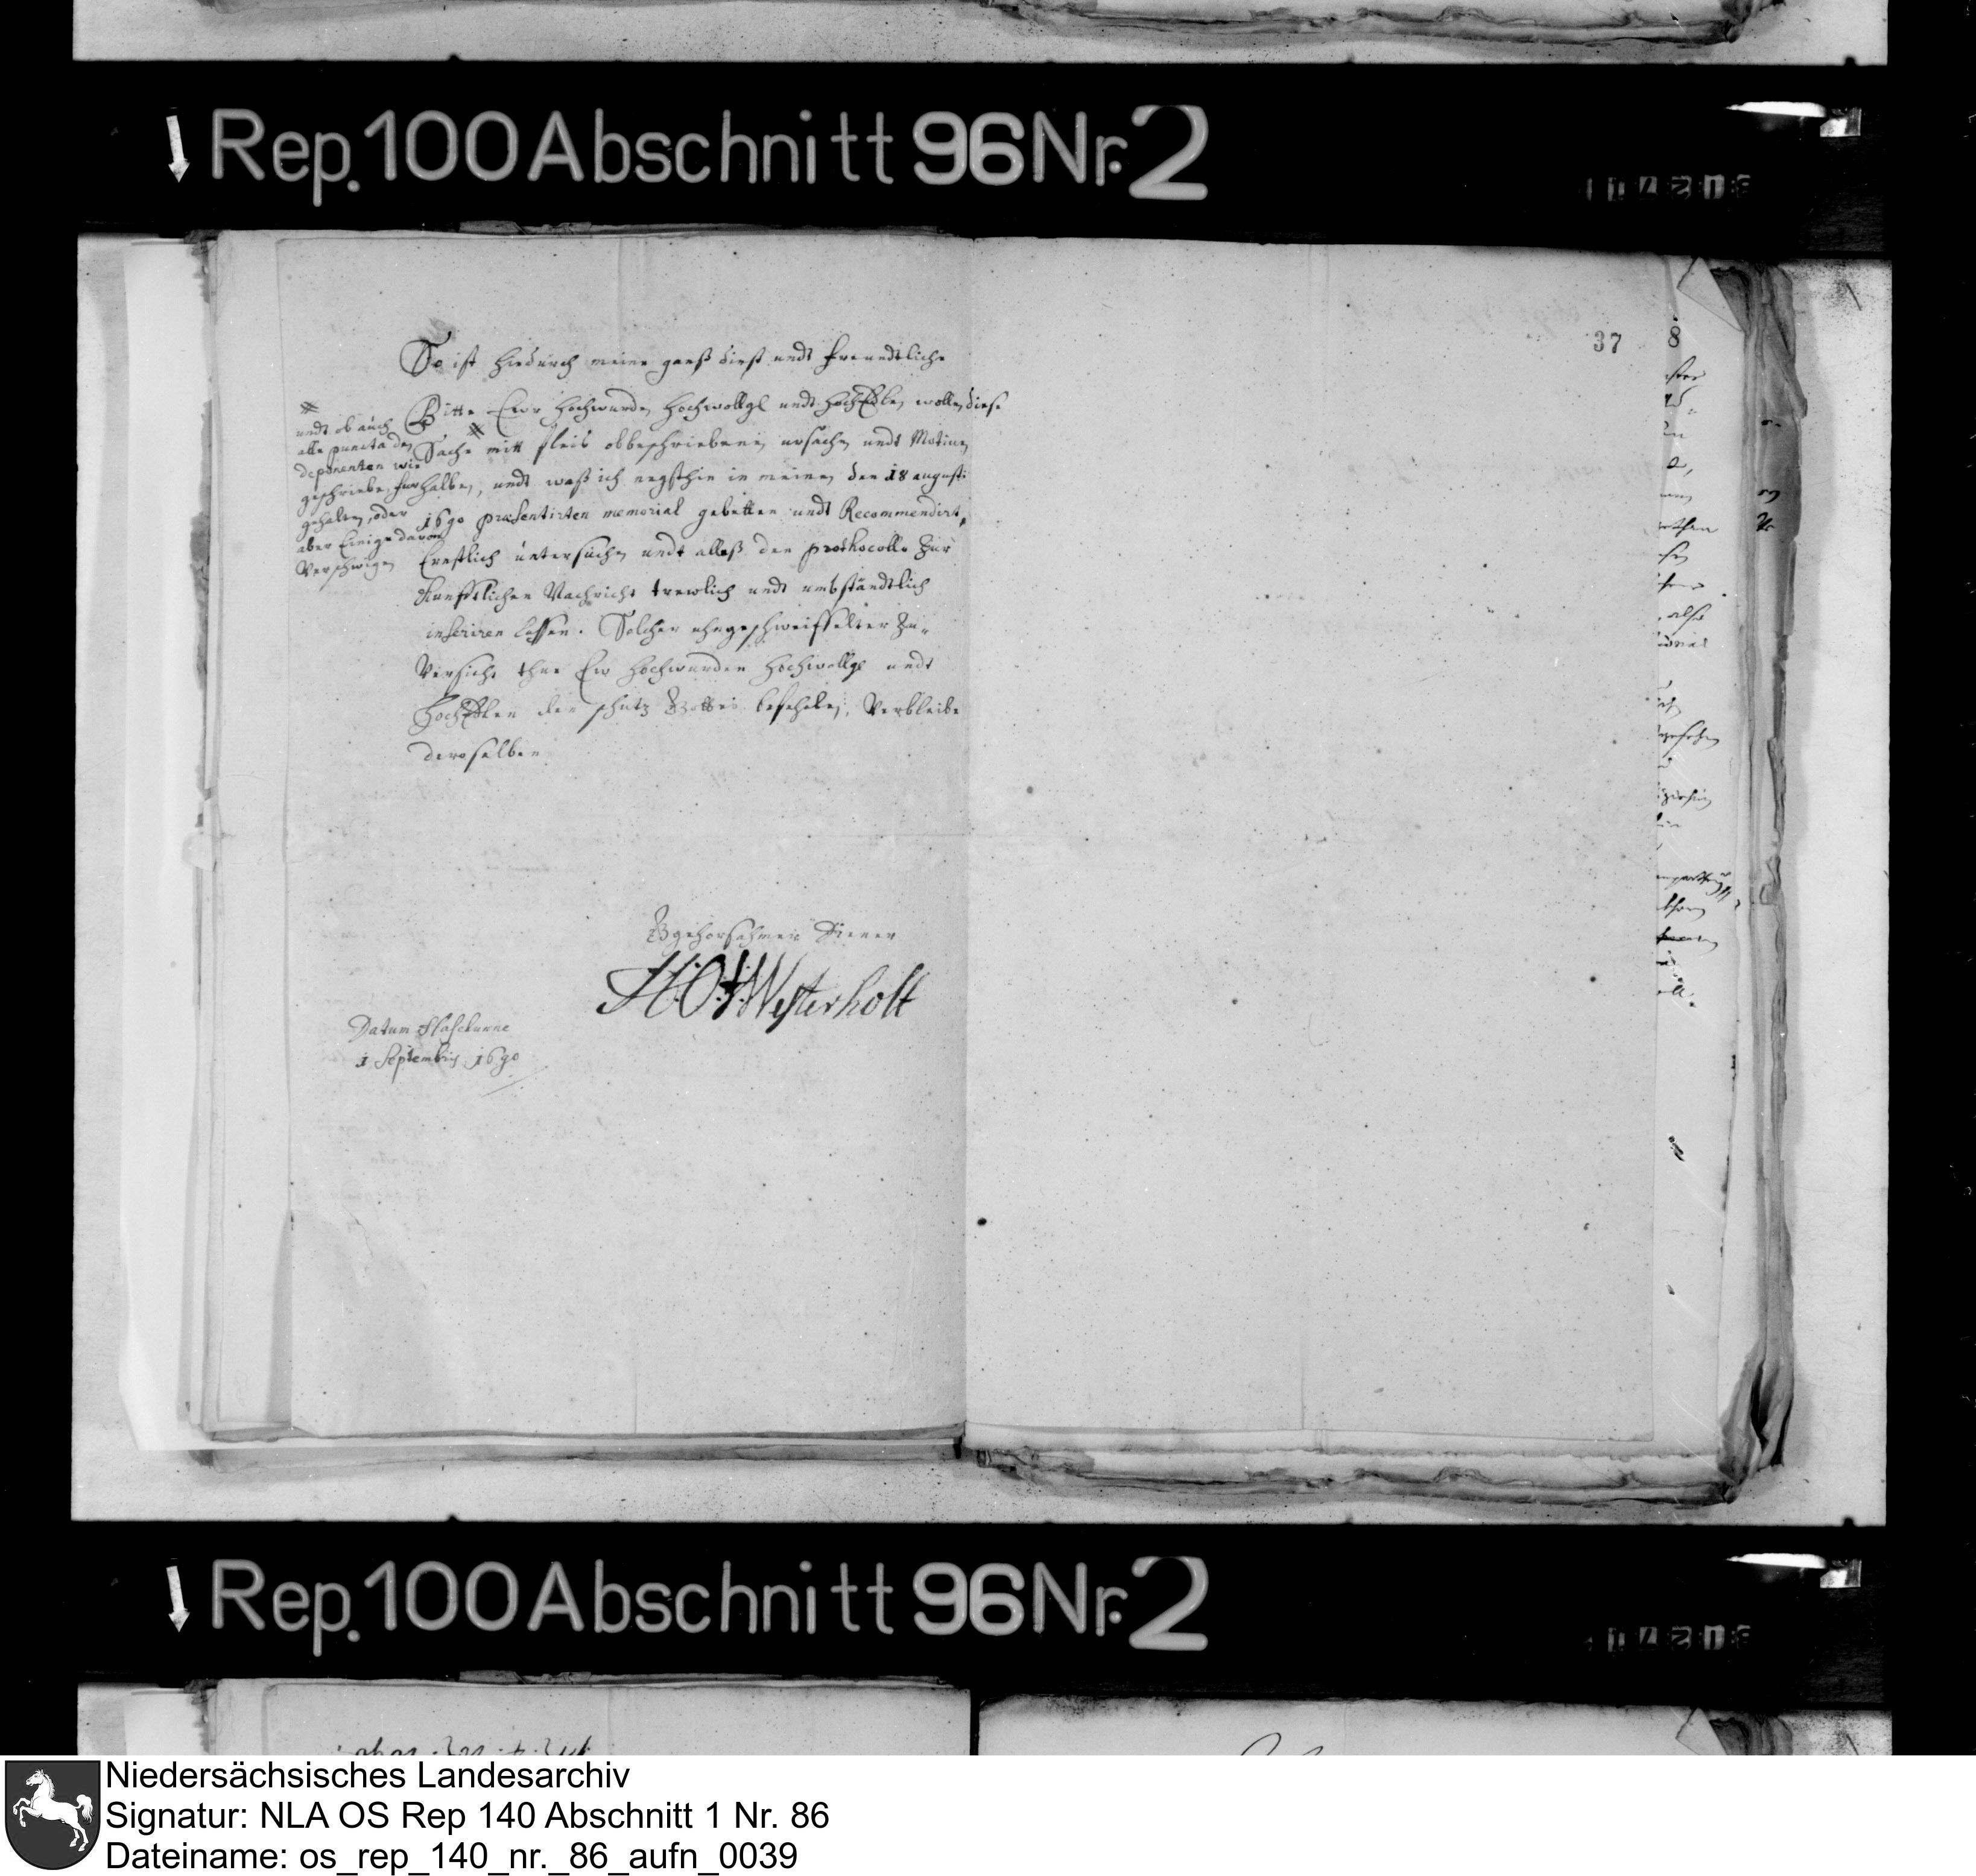 Rep. 100 Abschnitt 96 Nr. 2
37
8
So ist hiedurch meine gantz dinst undt freundtliche
Bitte Ewr Hochwurden Hochwollgl undt HochEdlen wollen diese
Sache # mitt fleis obbeschriebenen ursachen undt Motiven
halben, undt waß ich negsthin in meinen den 18 augusti
1690 præsentirten memorial gebetten undt Recommendirt,
Ernstlich untersuchen undt alleß den prothocollo zur
Kunfftlichen Nachricht trewlich undt umbständtlich
inseriren lassen. Solcher ohngezweiffelter Zu-
Versicht thue Ew Hochwurden Hochwollgl undt
HochEdlen den schutz Gottes befehlen, Verbleibe
deroselben
#
undt ob auch
alle puncta den
deponenten wie
geschrieben fur
gehalten, oder
aber Einige davon
Verschwigen
gehorsahmer Diener
Westerholt
Datum
1 Septembris 1690
Rep. 100 Abschnitt 96 Nr. 2
Niedersächsisches Landesarchiv
Signatur: NLA OS Rep 140 Abschnitt 1 Nr. 86
Dateiname: os_rep_140_nr._86_aufn_0039